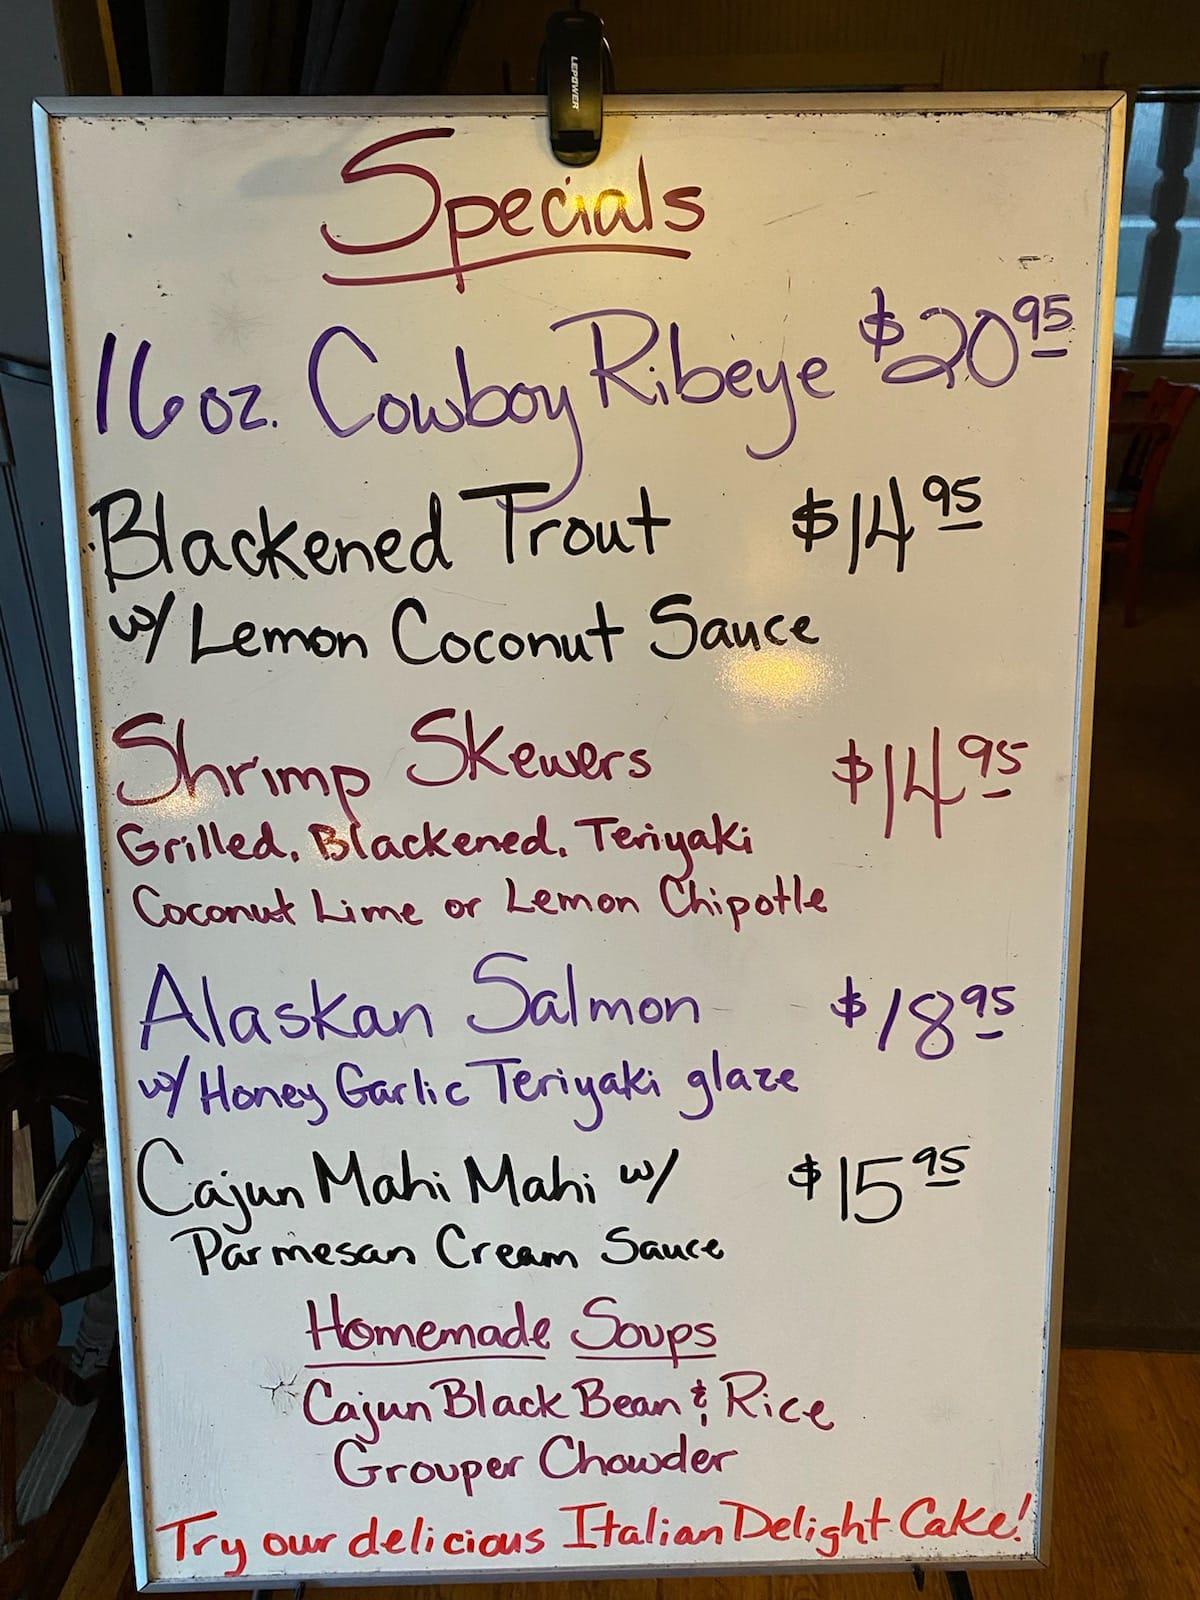 LEPOWER
Specials
16oz. Cowboy Ribeye $20.95
Blackened Trout $14.95
w/ Lemon Coconut Sauce
Shrimp Skewers $14.95
Grilled, Blackened, Teriyaki
Coconut Lime or Lemon Chipotle
Alaskan Salmon $18.95
w/ Honey Garlic Teriyaki glaze
Cajun Mahi Mahi w/ $15.95
Parmesan Cream Sauce
Homemade Soups
Cajun Black Bean & Rice
Grouper Chowder
Try our delicious Italian Delight Cake!